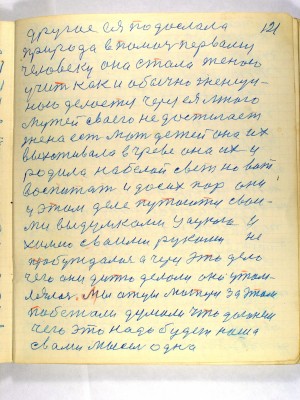 121
другое ея подослала
природа в помоч первому
человеку она стала женою
учит как и обычно женщи-
ною делоется через ея много
мужей своего не достогает
жена ест мат детей она их
выхоживала в чреве она их и
родила на белой свет но вот
воспитат и до сих пор они
у этом деле путоются свои-
ми выдумками наукою и
химию своими руками не
пробуждалася через это дело
чего они дить делоли они утом-
лялися. Мы отцы матери за этом
побежали думали что должен
чего это надо будет наша
с вами мысел одна